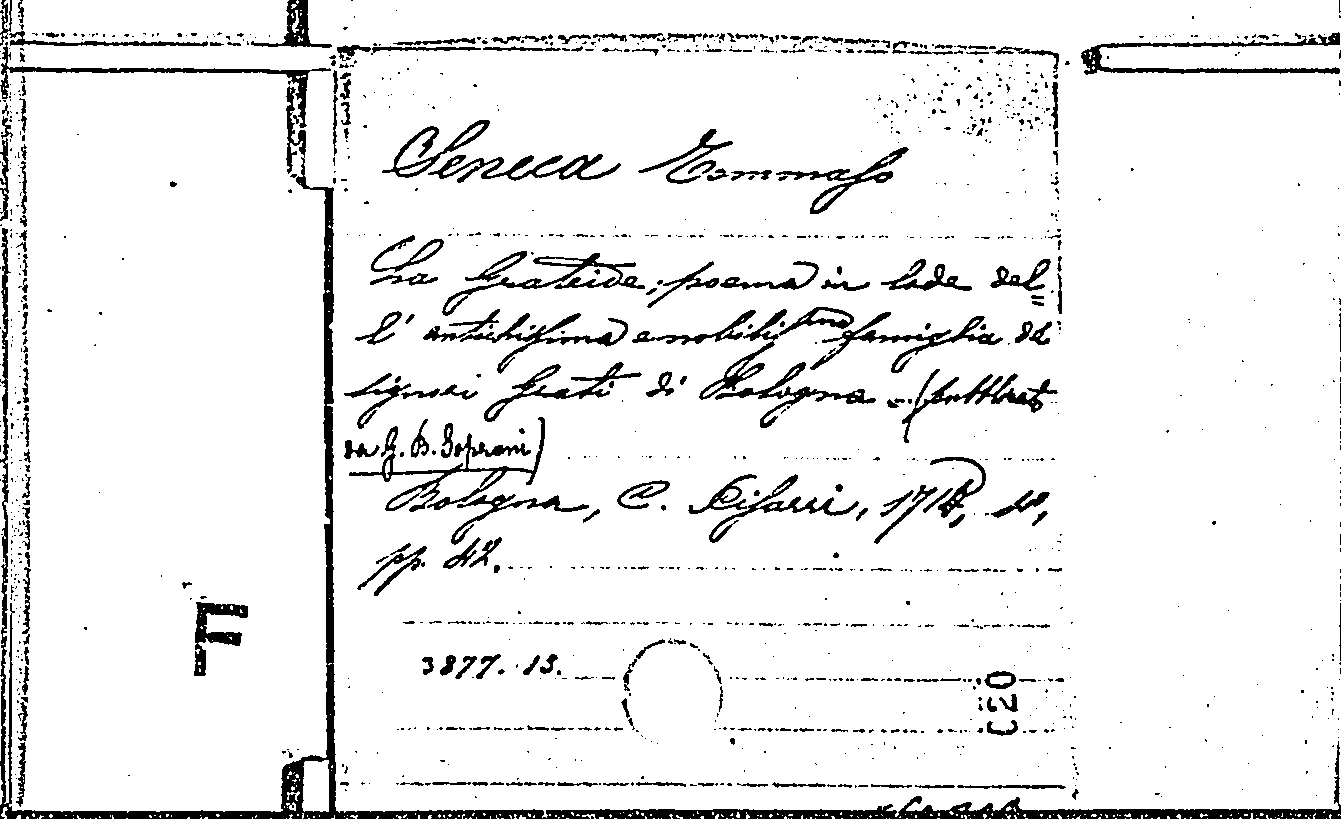 Seneca Tommaso
La Grateide, poema in lode del=
l' antichissima e nobilissima famiglia de
signori Grati di Bologna - (pubblicato
da G. B. Soprani)
Bologna, C. Pisarri, 1718, 4°,
pp. 42.
3877. 13.
F